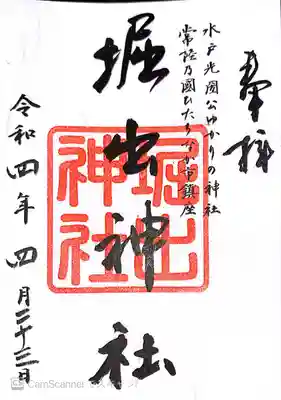 奉拝
水戸光圀公ゆかりの神社
常陸乃國ひたちなか市鎮座
堀出神社
堀出神社
令和四年四月二十三日
CamScanner でスキャン